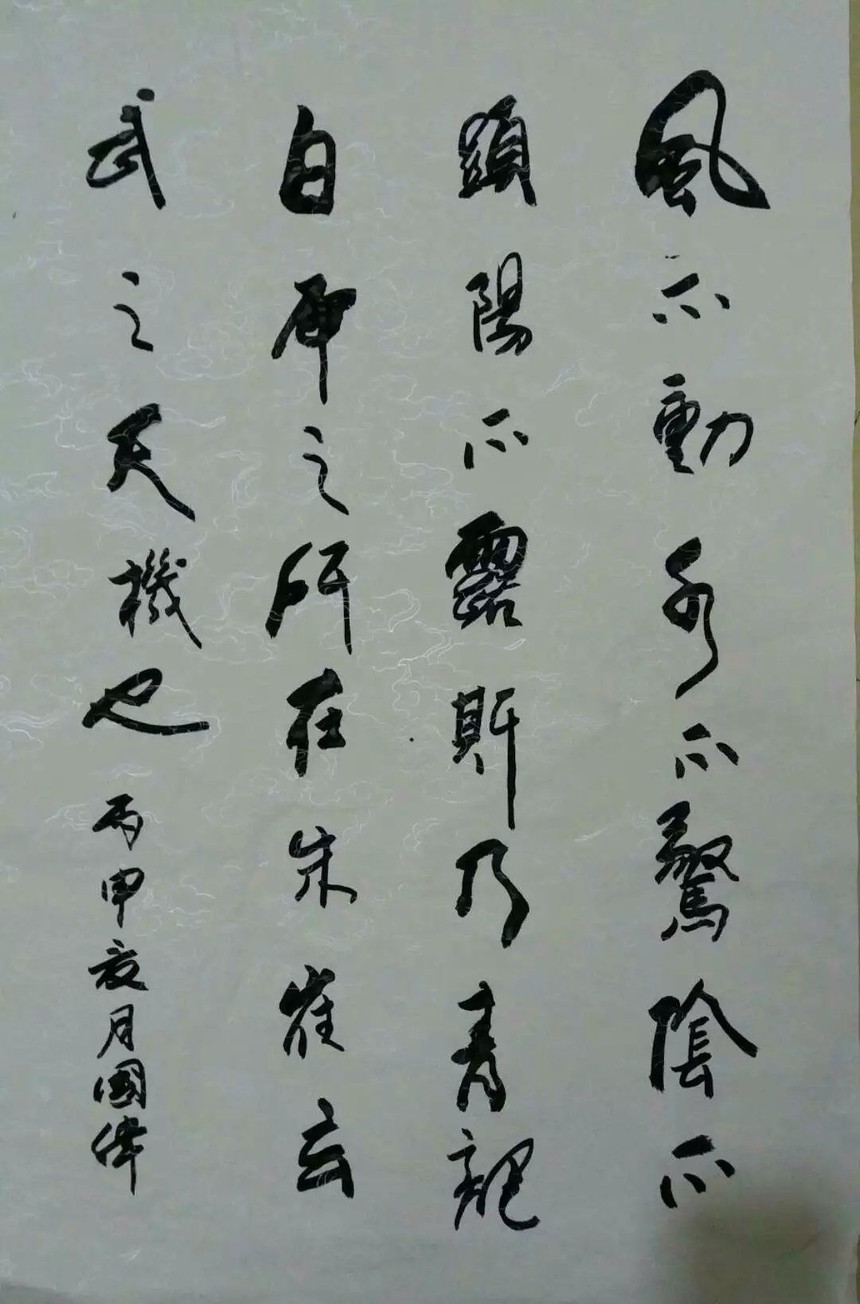 風不動水不驚陰不
顕陽不露斯乃青龍
白虎之所在朱雀玄
武之天機也丙申亥月國偉